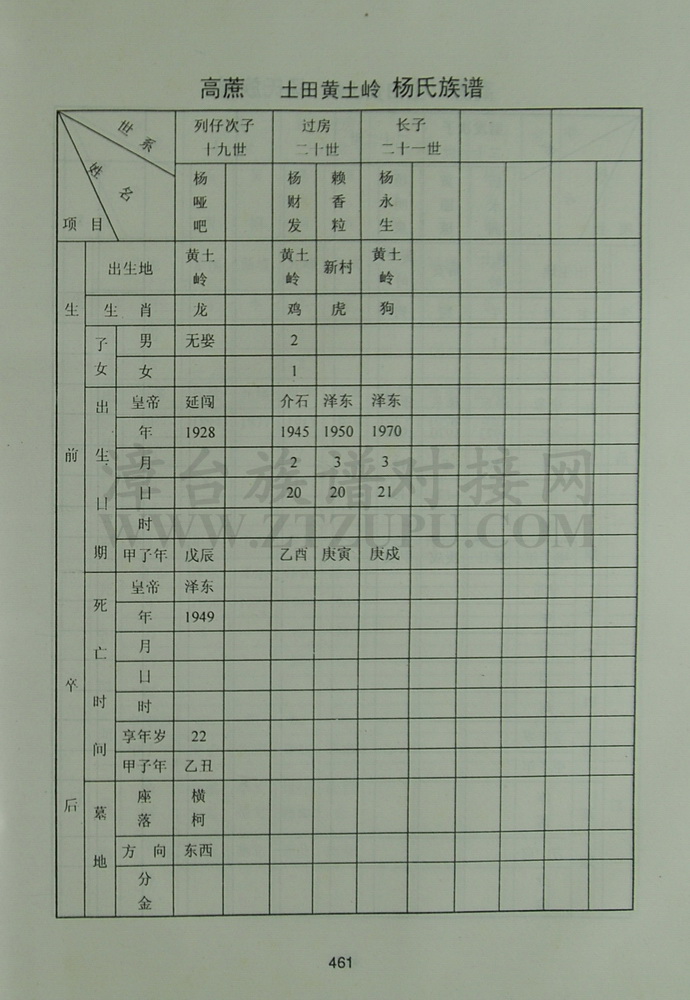 高蔗 土田黄土岭 杨氏族谱
世系 列仔次子 过房 长子
十九世 二十世 二十一世
姓名 杨哑吧 杨财发 赖香粒 杨永生
项目
生前 出生地 黄土岭 黄土岭 新村 黄土岭
生肖 龙 鸡 虎 狗
子女 男 无娶 2
女 1
出生日期 皇帝 延闯 介石 泽东 泽东
年 1928 1945 1950 1970
月 2 3 3
日 20 20 21
时
甲子年 戊辰 乙酉 庚寅 庚戍
卒后 死亡时间 皇帝 泽东
年 1949
月
日
时
享年岁 22
甲子年 乙丑
墓地 座落 横柯
方向 东西
分金
漳台族谱对接网
WWW.ZTZUPU.COM
461